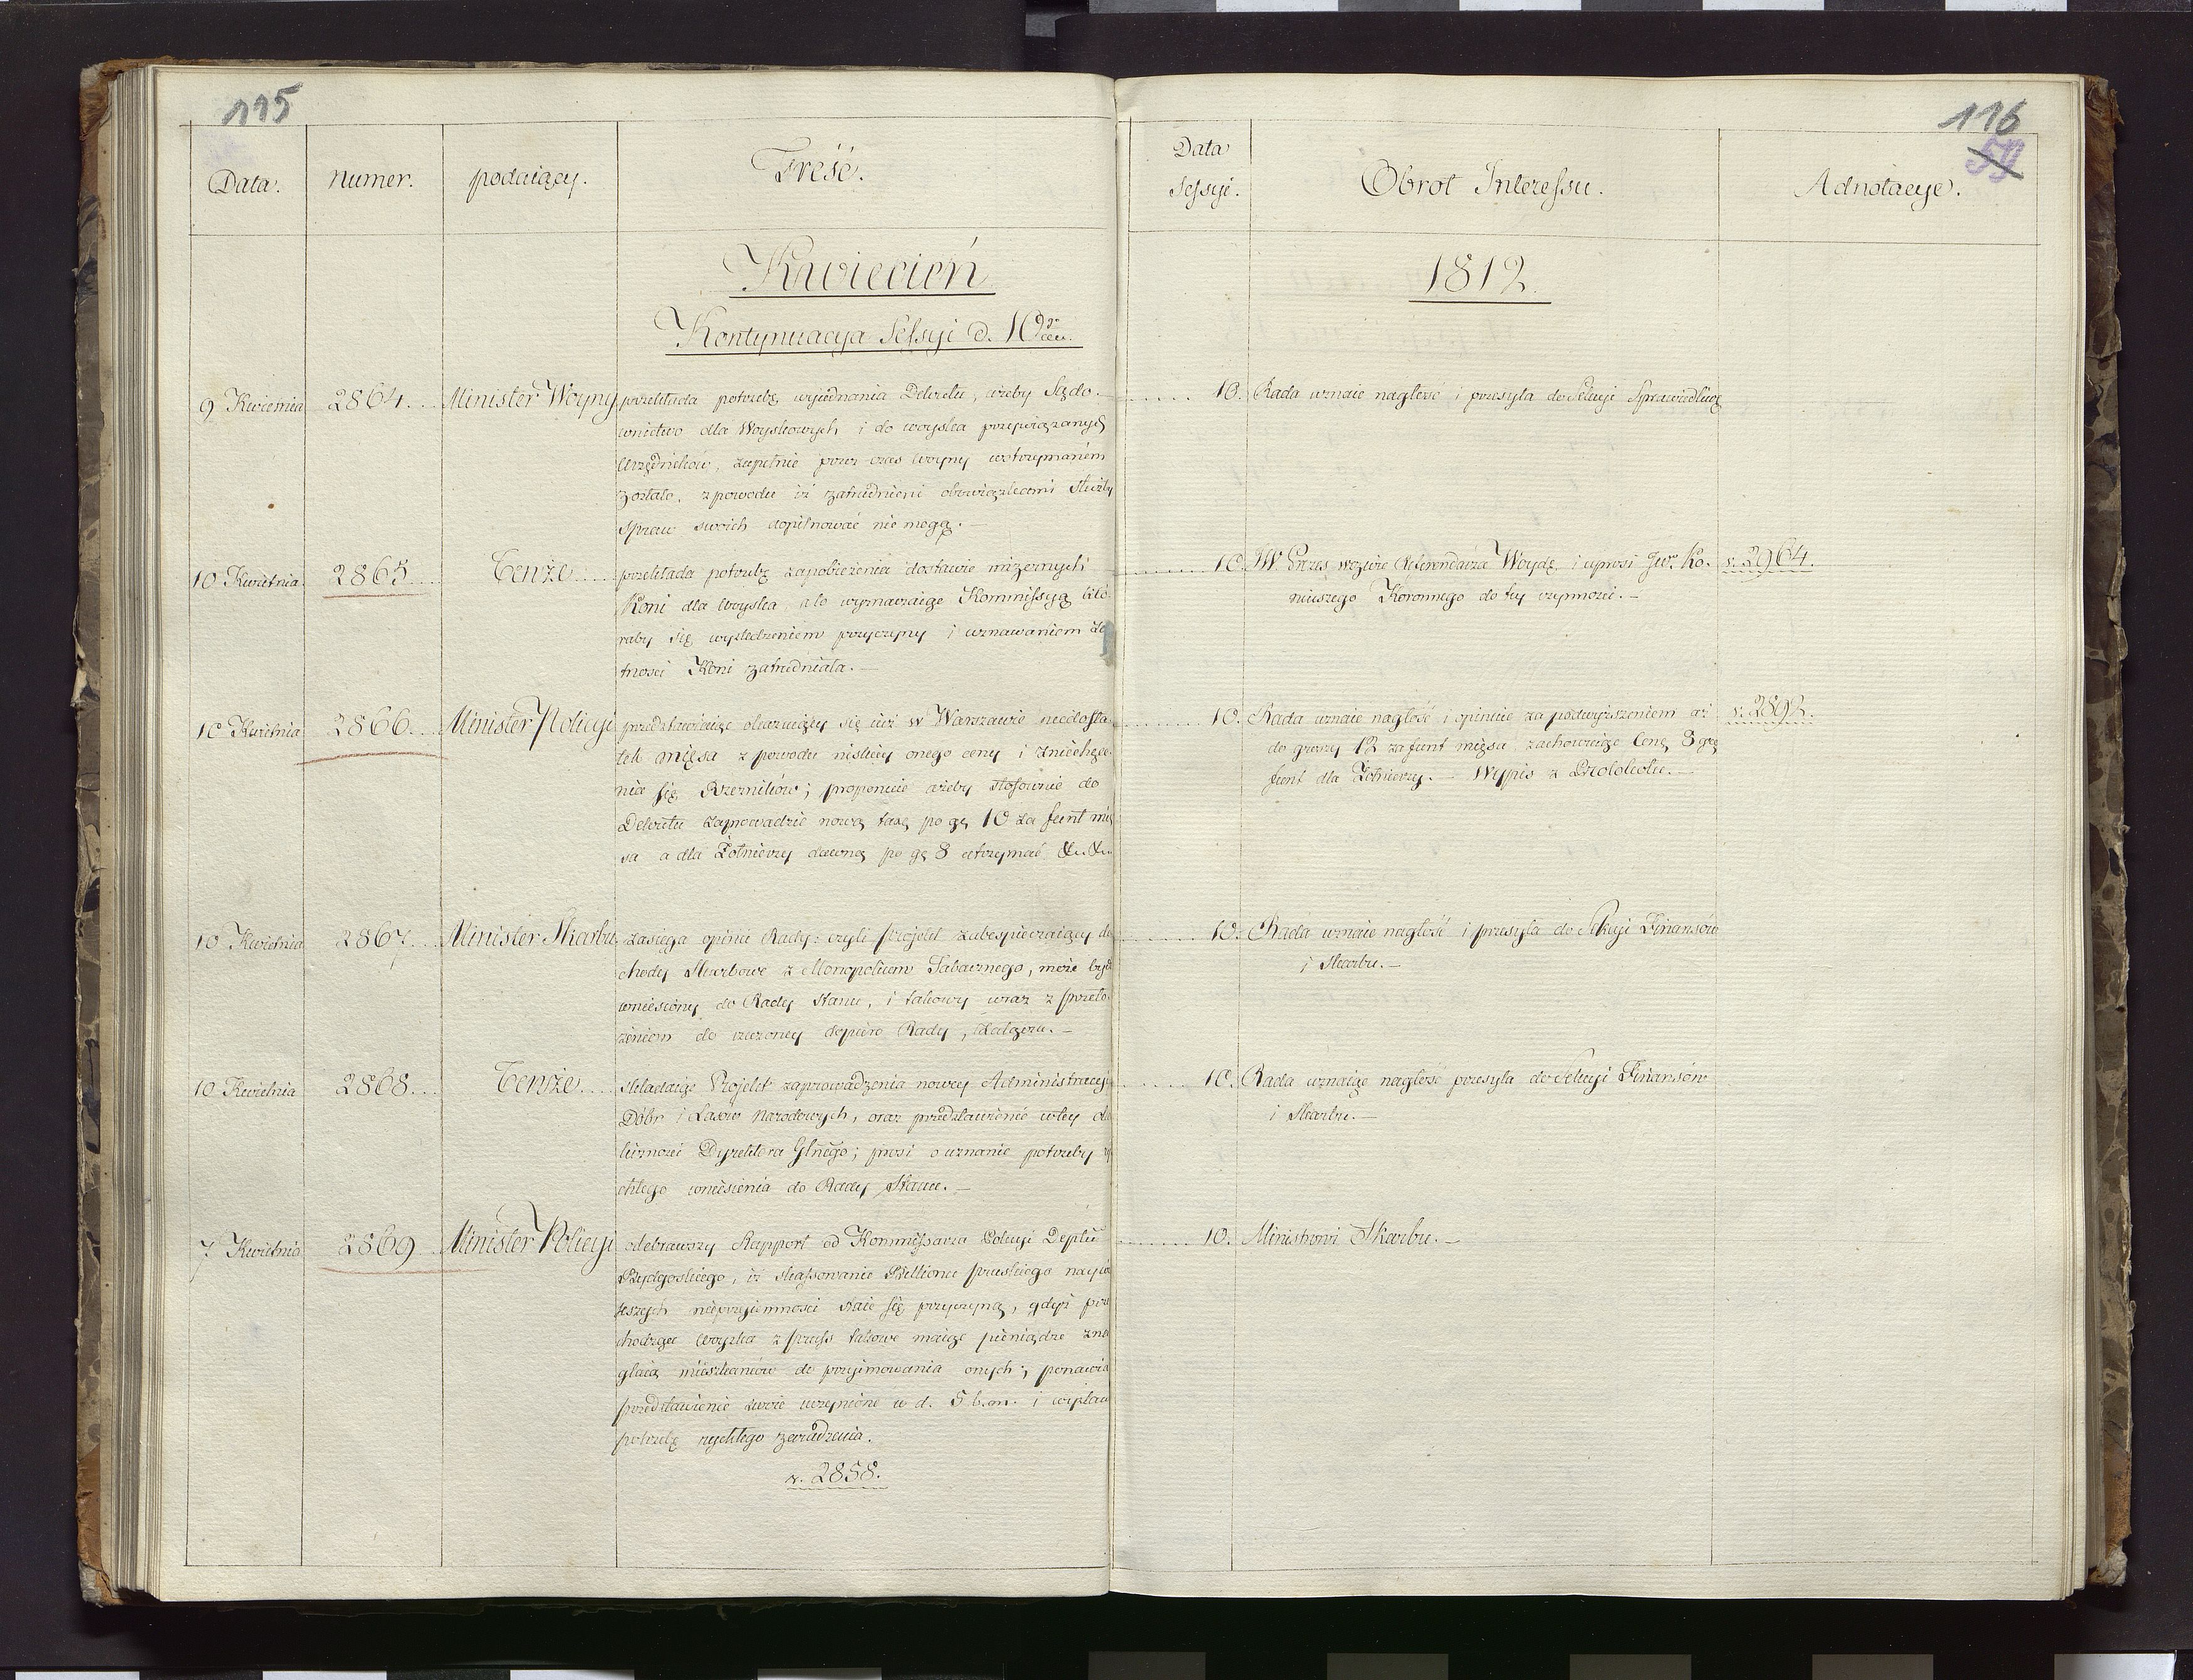 115
Data.
numer.
podaiący.
Treść.
Kwiecień
Kontynuacya Sessyi d. 10
9 Kwietnia 2864... Minister Woyny przekłada potrzebę wyiednania Dekretu, ażeby Sądo-
wnictwo dla Woyskowych, i do woyska przywiązanych
Urzędników, zupełnie przez czas woyny wstrzymaném
zostało, z powodu iż zatrudnieni obowiązkami służby
Spraw swoich dopilnować nie mogą.-
10 Kwietnia 2865.... Tenże.... przekłada potrzebę zapobieżenia dostawie mizernych
Koni dla woyska, a to wyznaczaiąc Kommissyą któ-
raby się wyśledzeniem przyczyny i uznawaniem
tności Koni zatrudniała.-
10 Kwietnia 2866... Minister Policyi przedstawiaiąc okazuiący się iuż w Warszawie niedosta-
tek mięsa z powodu niskiéy onego ceny i zniechęce-
nia się Rzezników; proponuie ażeby stosownie do
Dekretu zaprowadzić nową taxę po gr 10 za funt mię
sa a dla Żołnierzy dawną po gr 8 utrzymać &c. &c.
10 Kwietnia 2867... Minister Skarbu zasięga opinii Rady: czyli projekt zabespieczaiący do
chody Skarbowe z Monopolium Tabacznego, może bydź
wniesiony do Rady Stanu, i takowy wraz z przeło-
żeniem do rzeczoney dopiero Rady, załącza.-
10 Kwietnia 2868... Tenże.... składaiąc Projekt zaprowadzenia nowey Administracyi
Dóbr i Lasów Narodowych, oraz przedstawienie w tey o
liczności Dyrektora Glnego; prosi o uznanie potrzeby
chłego wniesienia do Rady Stanu.-
7 Kwietnia 2869... Minister Policyi odebrawszy Rapport od Kommissarza Policyi Deptu
Bydgoskiego, iż skassowanie Billonu pruskiego nayw
kszych nieprzyiemności staie się przyczyną, gdyż prze
chodzące woyska z Pruss takowe maiąc pieniądze zna
glaią mieszkańców do przyimowania onych; ponawia
przedstawienie swoie uczynione w d. 5 b.m. i wystaw
potrzebę rychłego zaradzenia.
v. 2858.
116
59
Data
Sessyi.
Obrot Interessu.
Adnotacye.
1812.
10. Rada uznaie nagłość i przesyła do Sekcyi Sprawiedliwey
10. JW Prezes wezwie Referendarza Woydę, i uprosi Jw. Ko- v. 2964.
niuszego Koronnego do tey czynności.-
10. Rada uznaie nagłość i opiniuie za podwyższeniem aż v. 2892.
do groszy 12 za funt mięsa, zachowuiąc Cenę 8 gr
funt dla Żołnierzy.- Wypis z Protokołu.-
10. Rada uznaie nagłość i przesyła do Sekcyi Finansów
i Skarbu.-
10. Rada uznaiąc nagłość przesyła do Sekcyi Finansów
i Skarbu.-
10. Ministrowi Skarbu.-